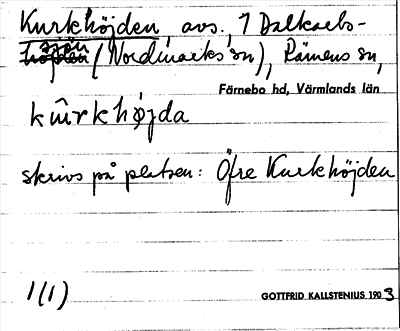 Kurkhöjden, avs., 7 Dalkarls-
sjön (Nordmarks sn), Rämens sn,
Färnebo hd, Värmlands län
kûrkhøjda
skrivs på platsen: Öfre Kurkhöjden
1(1)
GOTTFRID KALLSTENIUS 1903